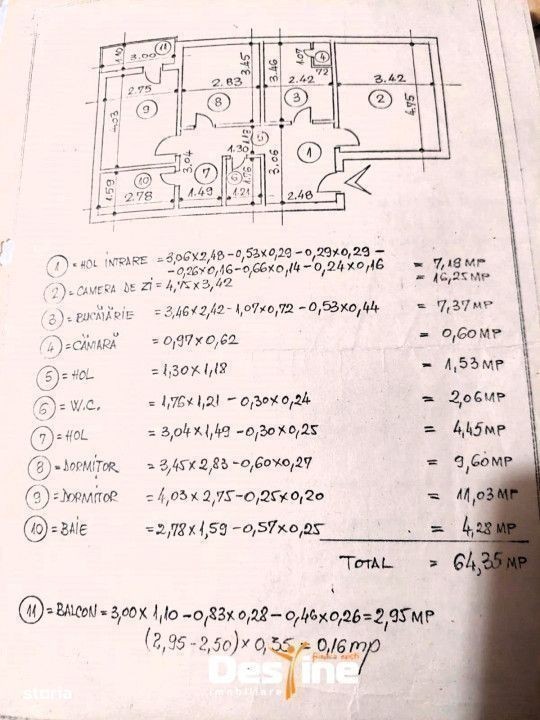 1,10
3.00
11
3.45
3.46
1,07
4
72
2.75
2.83
2.42
3.42
9
8
3
2
4.75
4.03
1.18
5
1.30
3.04
3.06
1
7
6
1.76
10
1.59
2.78
1.49
1.21
2.48
1 = HOL INTRARE = 3,06x2,48-0,53x0,29-0,29x0,29-
-0,26x0,16-0,66x0,14-0,24x0,16 = 7,18 MP
2 = CAMERA DE ZI = 4,75x3,42 = 16,25 MP
3 = BUCĂTĂRIE = 3,46x2,42-1,07x0,72-0,53x0,44 = 7,37 MP
4 = CĂMARĂ = 0,97x0,62 = 0,60 MP
5 = HOL = 1,30x1,18 = 1,53 MP
6 = W.C. = 1,76x1,21-0,30x0,24 = 2,06 MP
7 = HOL = 3,04x1,49-0,30x0,25 = 4,45 MP
8 = DORMITOR = 3,45x2,83-0,60x0,27 = 9,60 MP
9 = DORMITOR = 4,03x2,75-0,25x0,20 = 11,03 MP
10 = BAIE = 2,78x1,59-0,57x0,25 = 4,28 MP
TOTAL = 64,35 MP
11 = BALCON = 3,00x1,10-0,83x0,28-0,46x0,26=2,95 MP
(2,95-2,50)x0,35=0,16 mp
Destine
imobiliare
storia